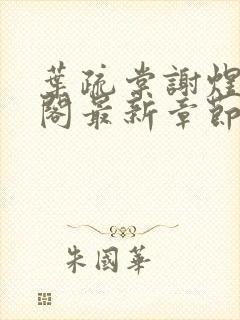 葉疏棠謝煜
閣最新章節
朱國華